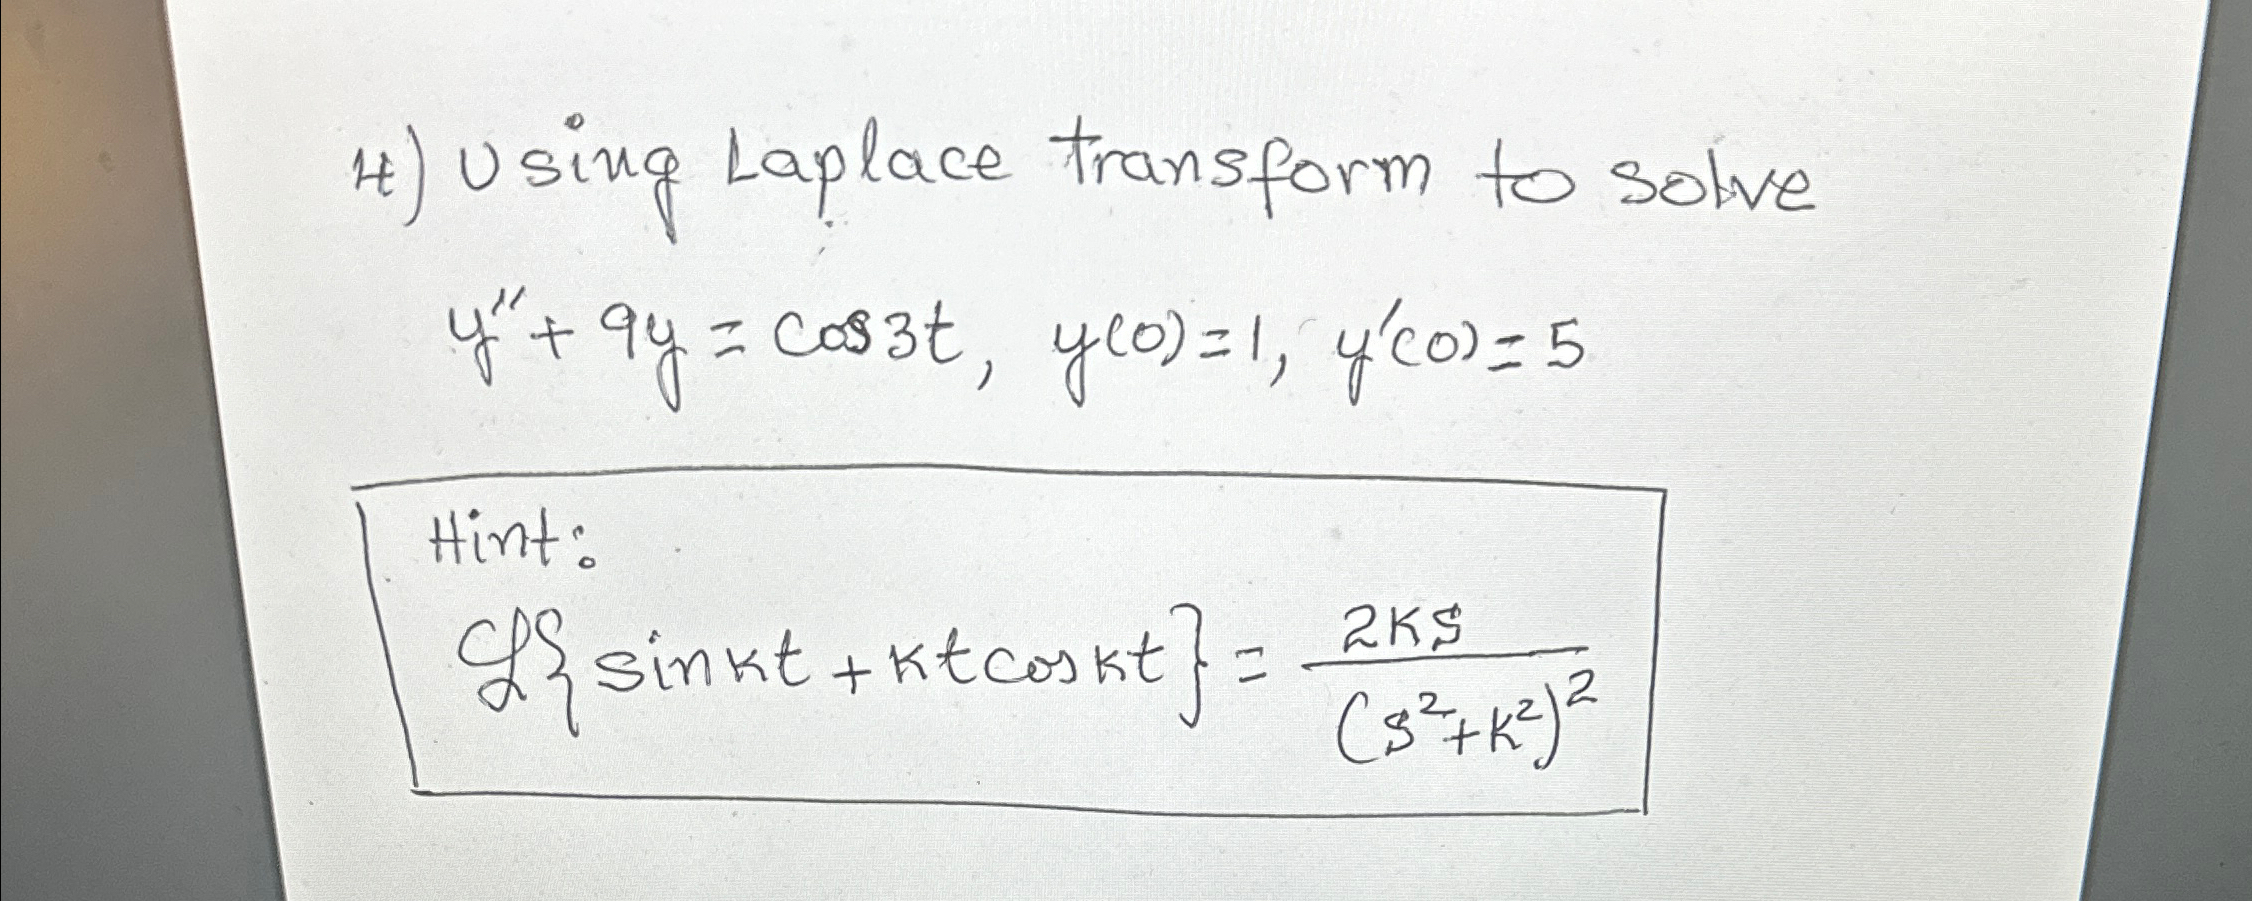 4) Using Laplace transform to solve
y'' + 9y = cos3t, y(0)=1, y'(0)=5
Hint:
ℒ{sinkt + ktcoskt} = 2ks / (s²+k²)²